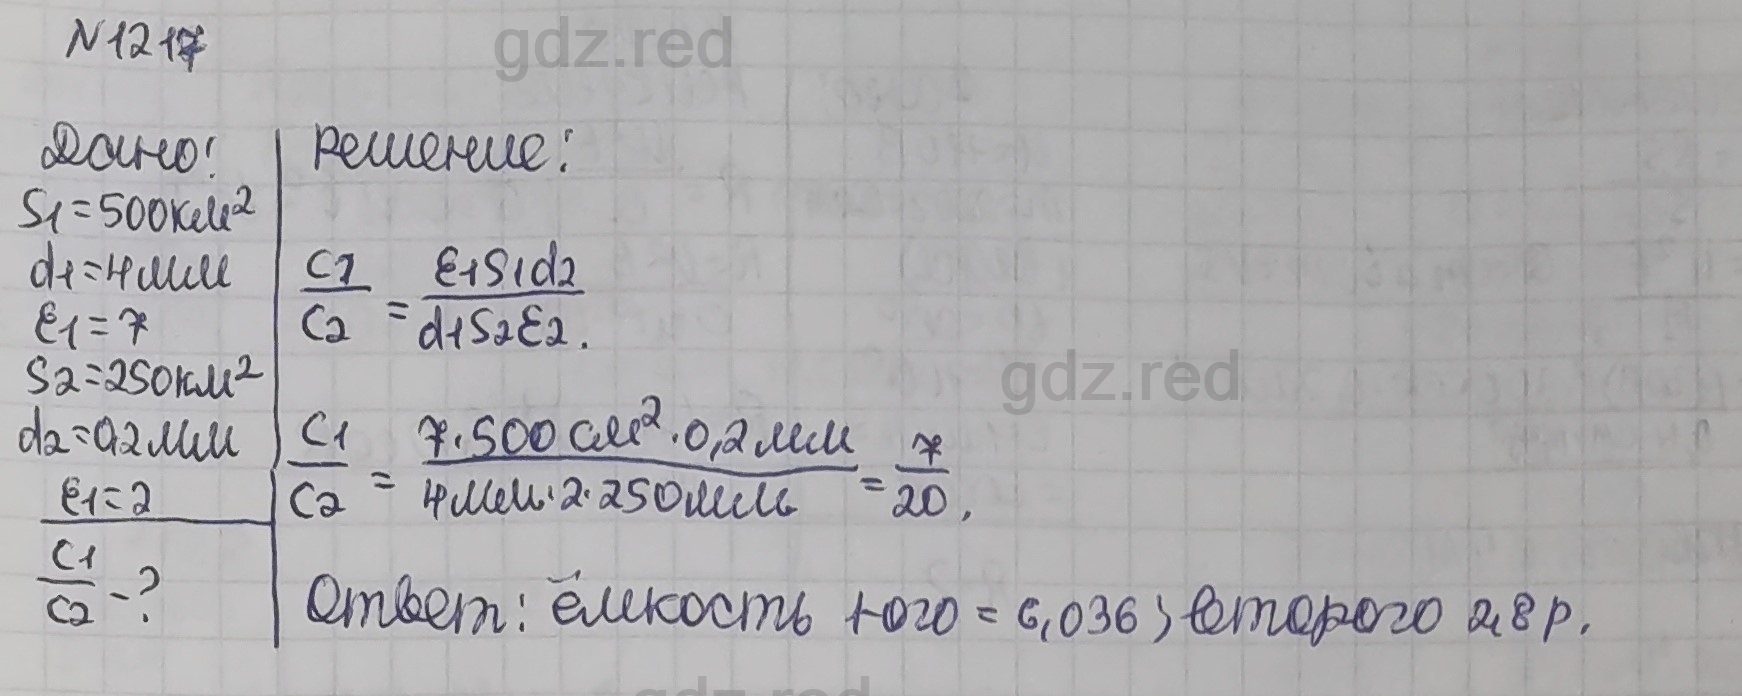 N1217
gdz.red
Дано:
S1=500км²
d1=4мм
Ɛ1=7
S2=250км²
d2=0,2мм
Ɛ1=2
C1/C2 -?
Решение:
C1/C2 = Ɛ1S1d2/d1S2Ɛ2.
gdz.red
C1/C2 = 7·500см²·0,2мм/4мм·2·250мм = 7/20.
Ответ: ёмкость 1-ого = ,036; второго 2,8р.
gdz.red